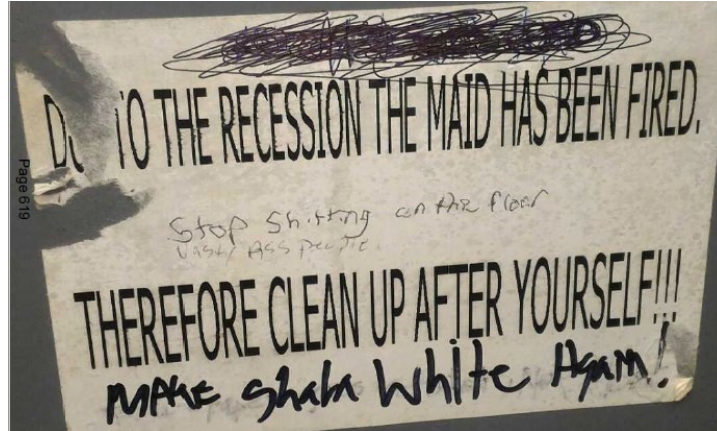 TO THE RECESSION THE MAID HAS BEEN FIRED.
Page 619
Stop Shitting on the floor
Nasty Ass people
THEREFORE CLEAN UP AFTER YOURSELF!!!
MAKE Shaba White Again!